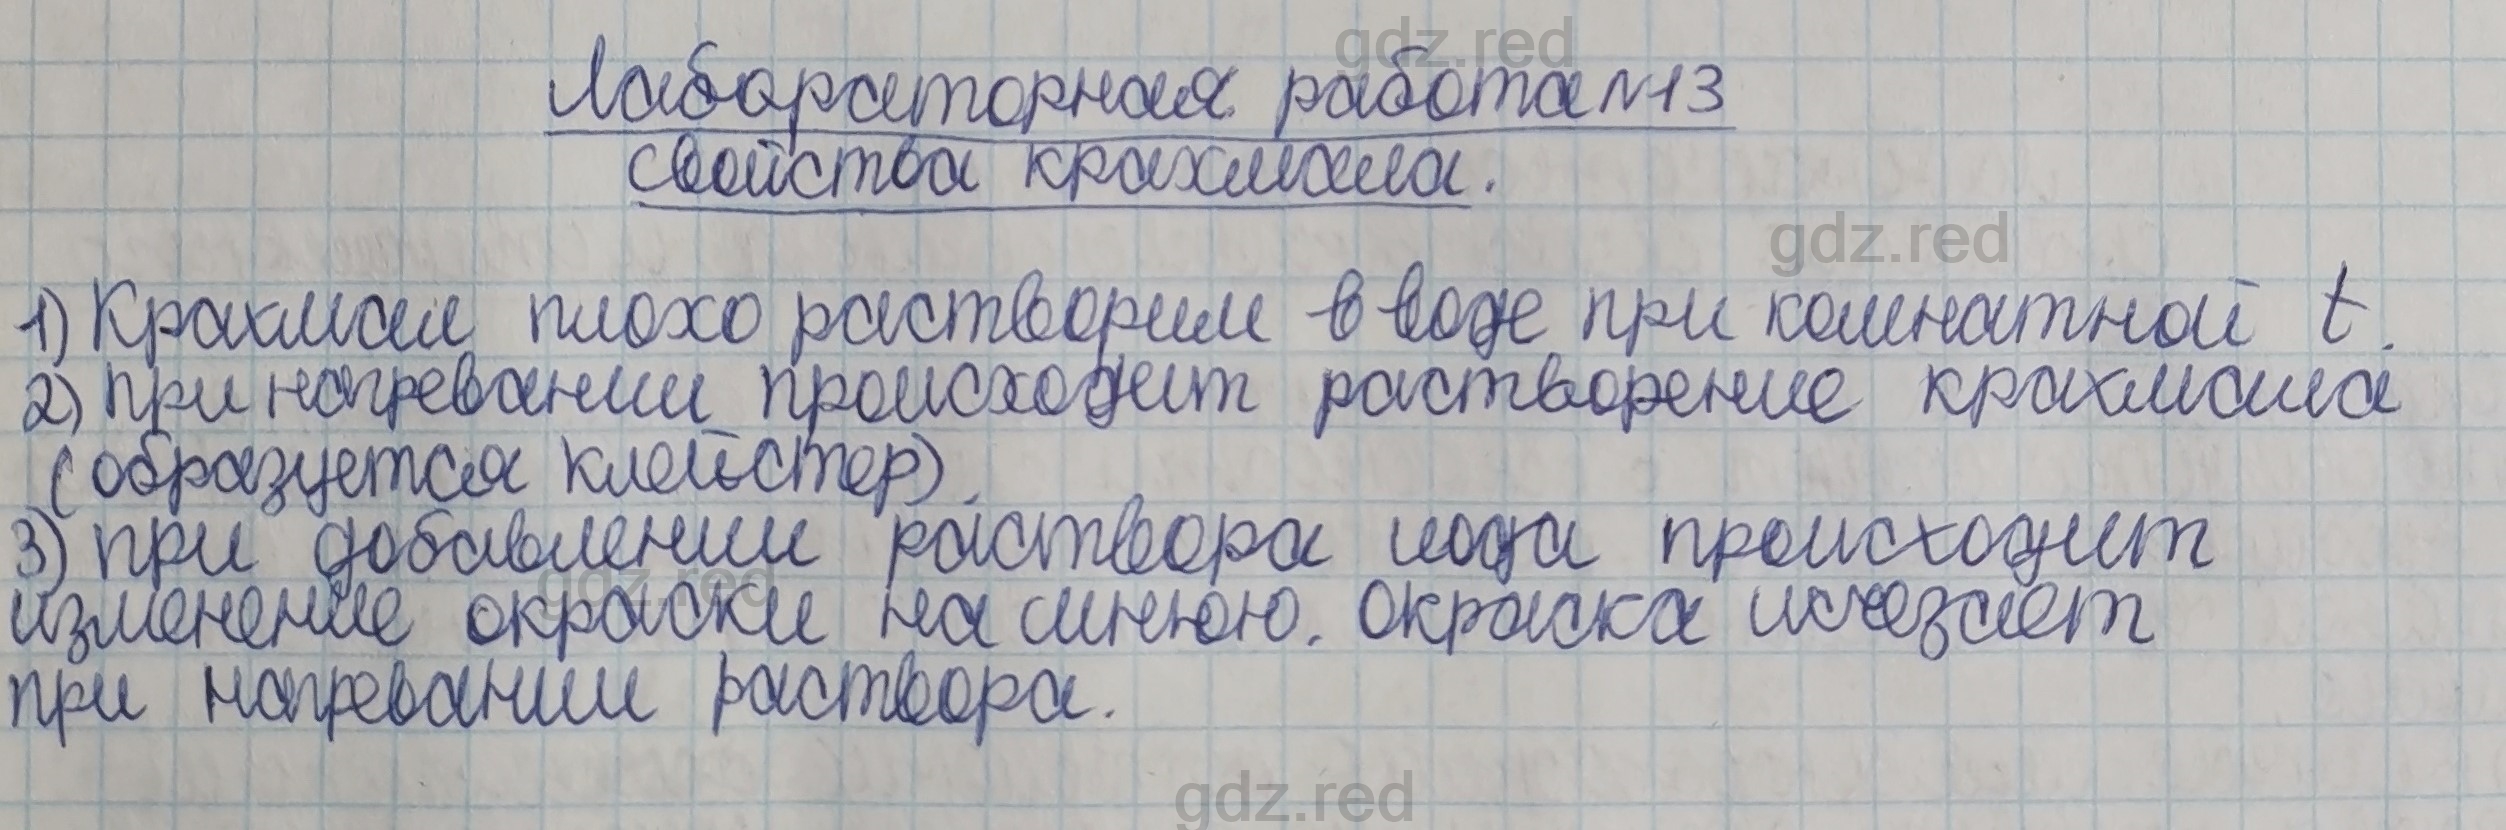 gdz.red
Лабораторная работа №13
свойства крахмала.
gdz.red
1) Крахмал плохо растворим в воде при комнатной t.
2) при нагревании происходит растворение крахмала
(образуется клейстер).
3) при добавлении раствора иода происходит
gdz.red
изменение окраски на синюю. Окраска исчезает
при нагревании раствора.
gdz.red